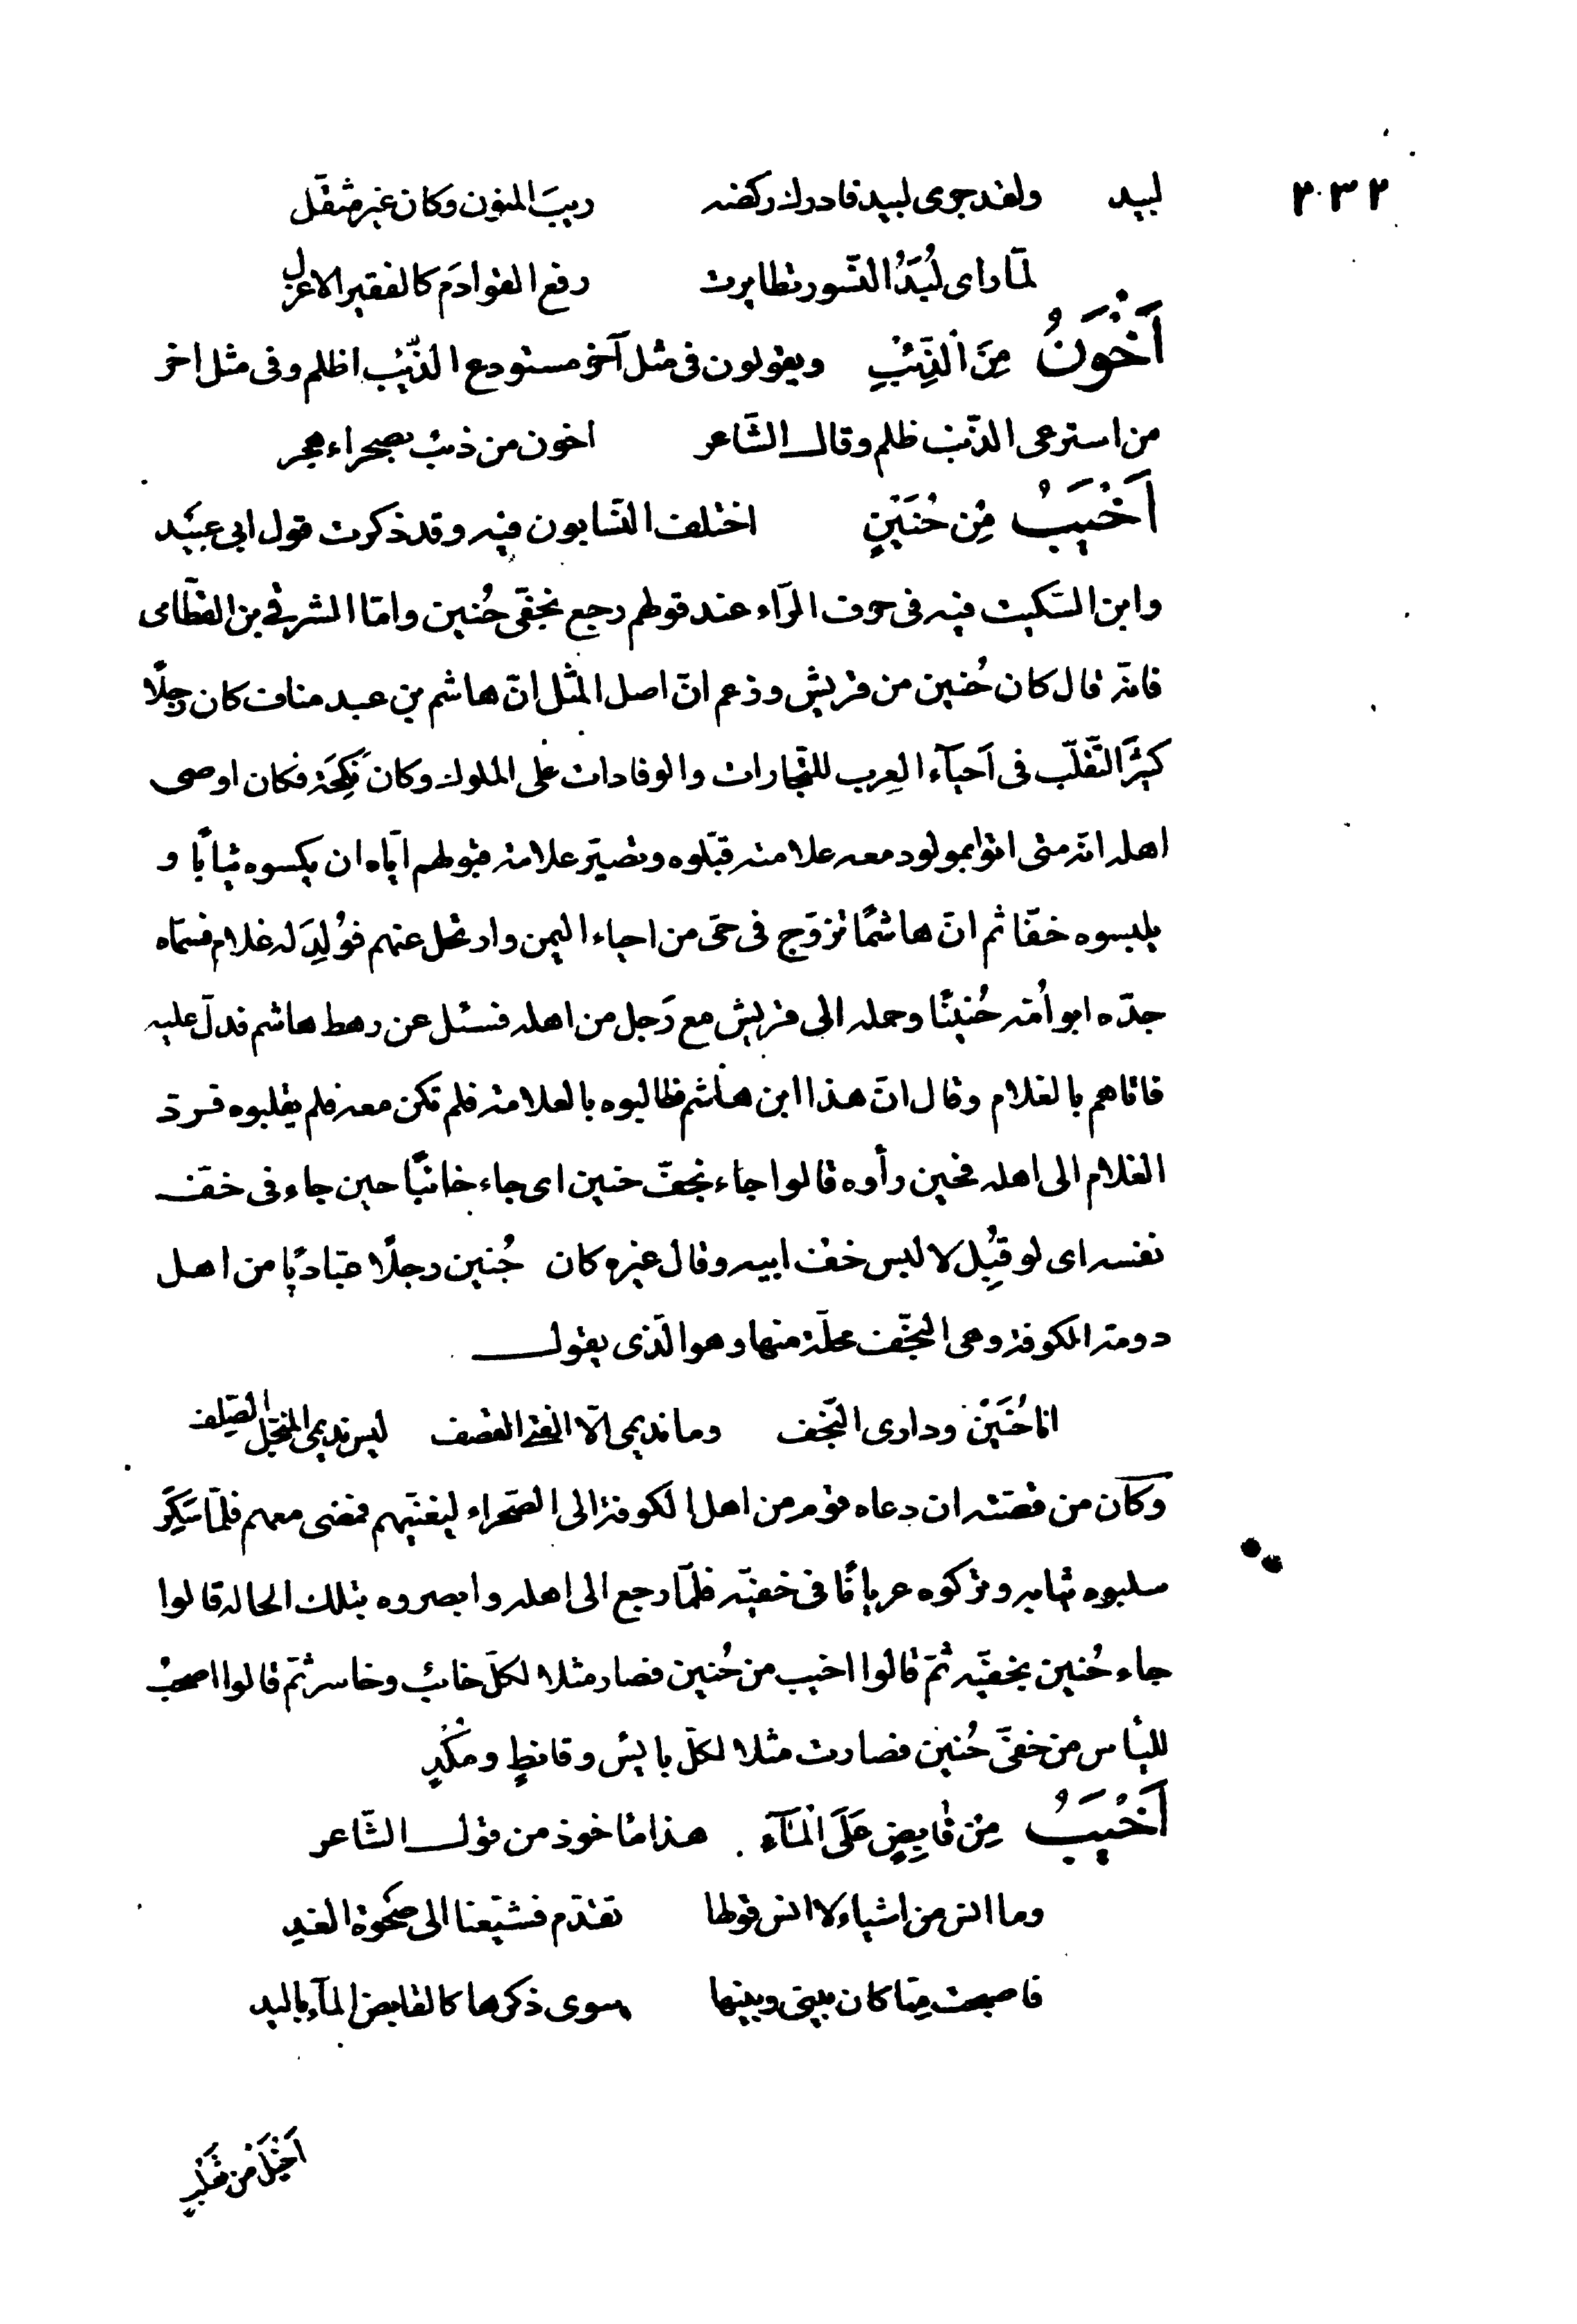 ٢٣٢
لبيد ولقد جرى لبيد فادرك ركضه ريبَ المنون وكان غير مثقّل
لمّا راى لُبَدُ النّسور تطايرت رفع القوادمَ كالفقير الاعزل
اَخْوَنُ مِنَ الذِّئْبِ ويقولون فى مثل آخر مستودع الذّئب اظلم وفى مثل اخر
من استرعى الذّئب ظلم وقال الشّاعر اخون من ذئب بصحراء هجر
اَخْيَبُ مِنْ حُنَيْنٍ اختلف النّسّابون فيه وقد ذكرت قول ابى عبيد
وابن السّكيت فيه فى حرف الرّاء عند قولهم رجع بخفّى حُنين وامّا الشرقى بن القطّامى
فانّه قال كان حُنين من قريش وزعم انّ اصل المثل انّ هاشم بن عبد مناف كان رجلًا
كثيرَ التّقلّب فى اَحيآء العرب للتّجارات والوفادات على الملوك وكان نُكَحَة فكان اوصى
اهله انّه متى اتوا بمولود معه علامته قبّلوه وتصيّر علامة قبولهم ايّاه ان يكسوه ثيابًا و
يلبسوه خفّا ثم انّ هاشمًا تزوّج فى حىّ من احياء اليمن وارتحل عنهم فوُلِدَ له غلام فسمّاه
جدّه ابو اُمّه حُنينًا وحمله الى قريش مع رَجل من اهله فسئل عن رهط هاشم فدلّ عليه
فاتاهم بالغلام وقال انّ هذا ابن هاشم فطالبوه بالعلامة فلم تكن معه فلم يقلبوه فردّ
الغلام الى اهله فحين رأوه قالوا جاء بخفّ حنين اى جاء خائبًا حين جاء فى خفّ
نفسه اى لو قُبِل لالبس خفّ ابيه وقال غيره كان حُنين رجلًا عبّاديًا من اهل
دومة الكوفة وهى النّجف محلّة منها وهو الّذى يقول
انا حُنَيْن ودارى النّجف وما نديمى الّا الفتى القصف ليس نديمى المنجّل الصّلف
وكان من قصّته ان دعاه قوم من اهل الكوفة الى الصّحراء ليغنّيهم فمضى معهم فلمّا سَكِرَ
سلبوه ثيابه وتركوه عريانًا فى خفّيه فلمّا رجع الى اهله وابصروه بتلك الحالة قالوا
جاء حُنين بخفّيه ثمّ قالوا اخيب من حُنين فصار مثلا لكلّ خائب وخاسر ثمّ قالوا اصحبُ
لليأس من خفّى حُنين فصارت مثلا لكلّ يائس وقانطٍ ومُكْدٍ
اَخْيَبُ مِنْ قابِضٍ عَلَى الْمَآءِ هذا مأخوذ من قول الشّاعر
وما انس من اشياء لا انس قولها تقدّم فشيّعنا الى ضَحوة الغدِ
فاصبحت ممّا كان بينى وبينها سوى ذكرها كالقابض المآء باليد
اَخْيَلُ مِن